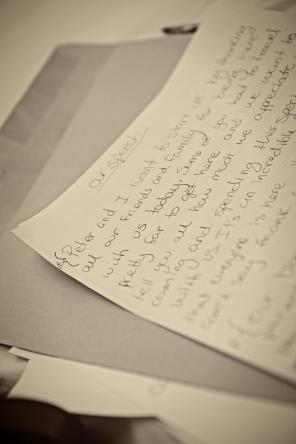 our speech
Peter and I want to start off by thanking
all our friends and family for being here
with us today, some of you had to travel
pretty far to get here and we want to
tell you all how much we appreciate
coming and spending this spec
with us. It's an incredible
that everyone is here
can't say thank
Our